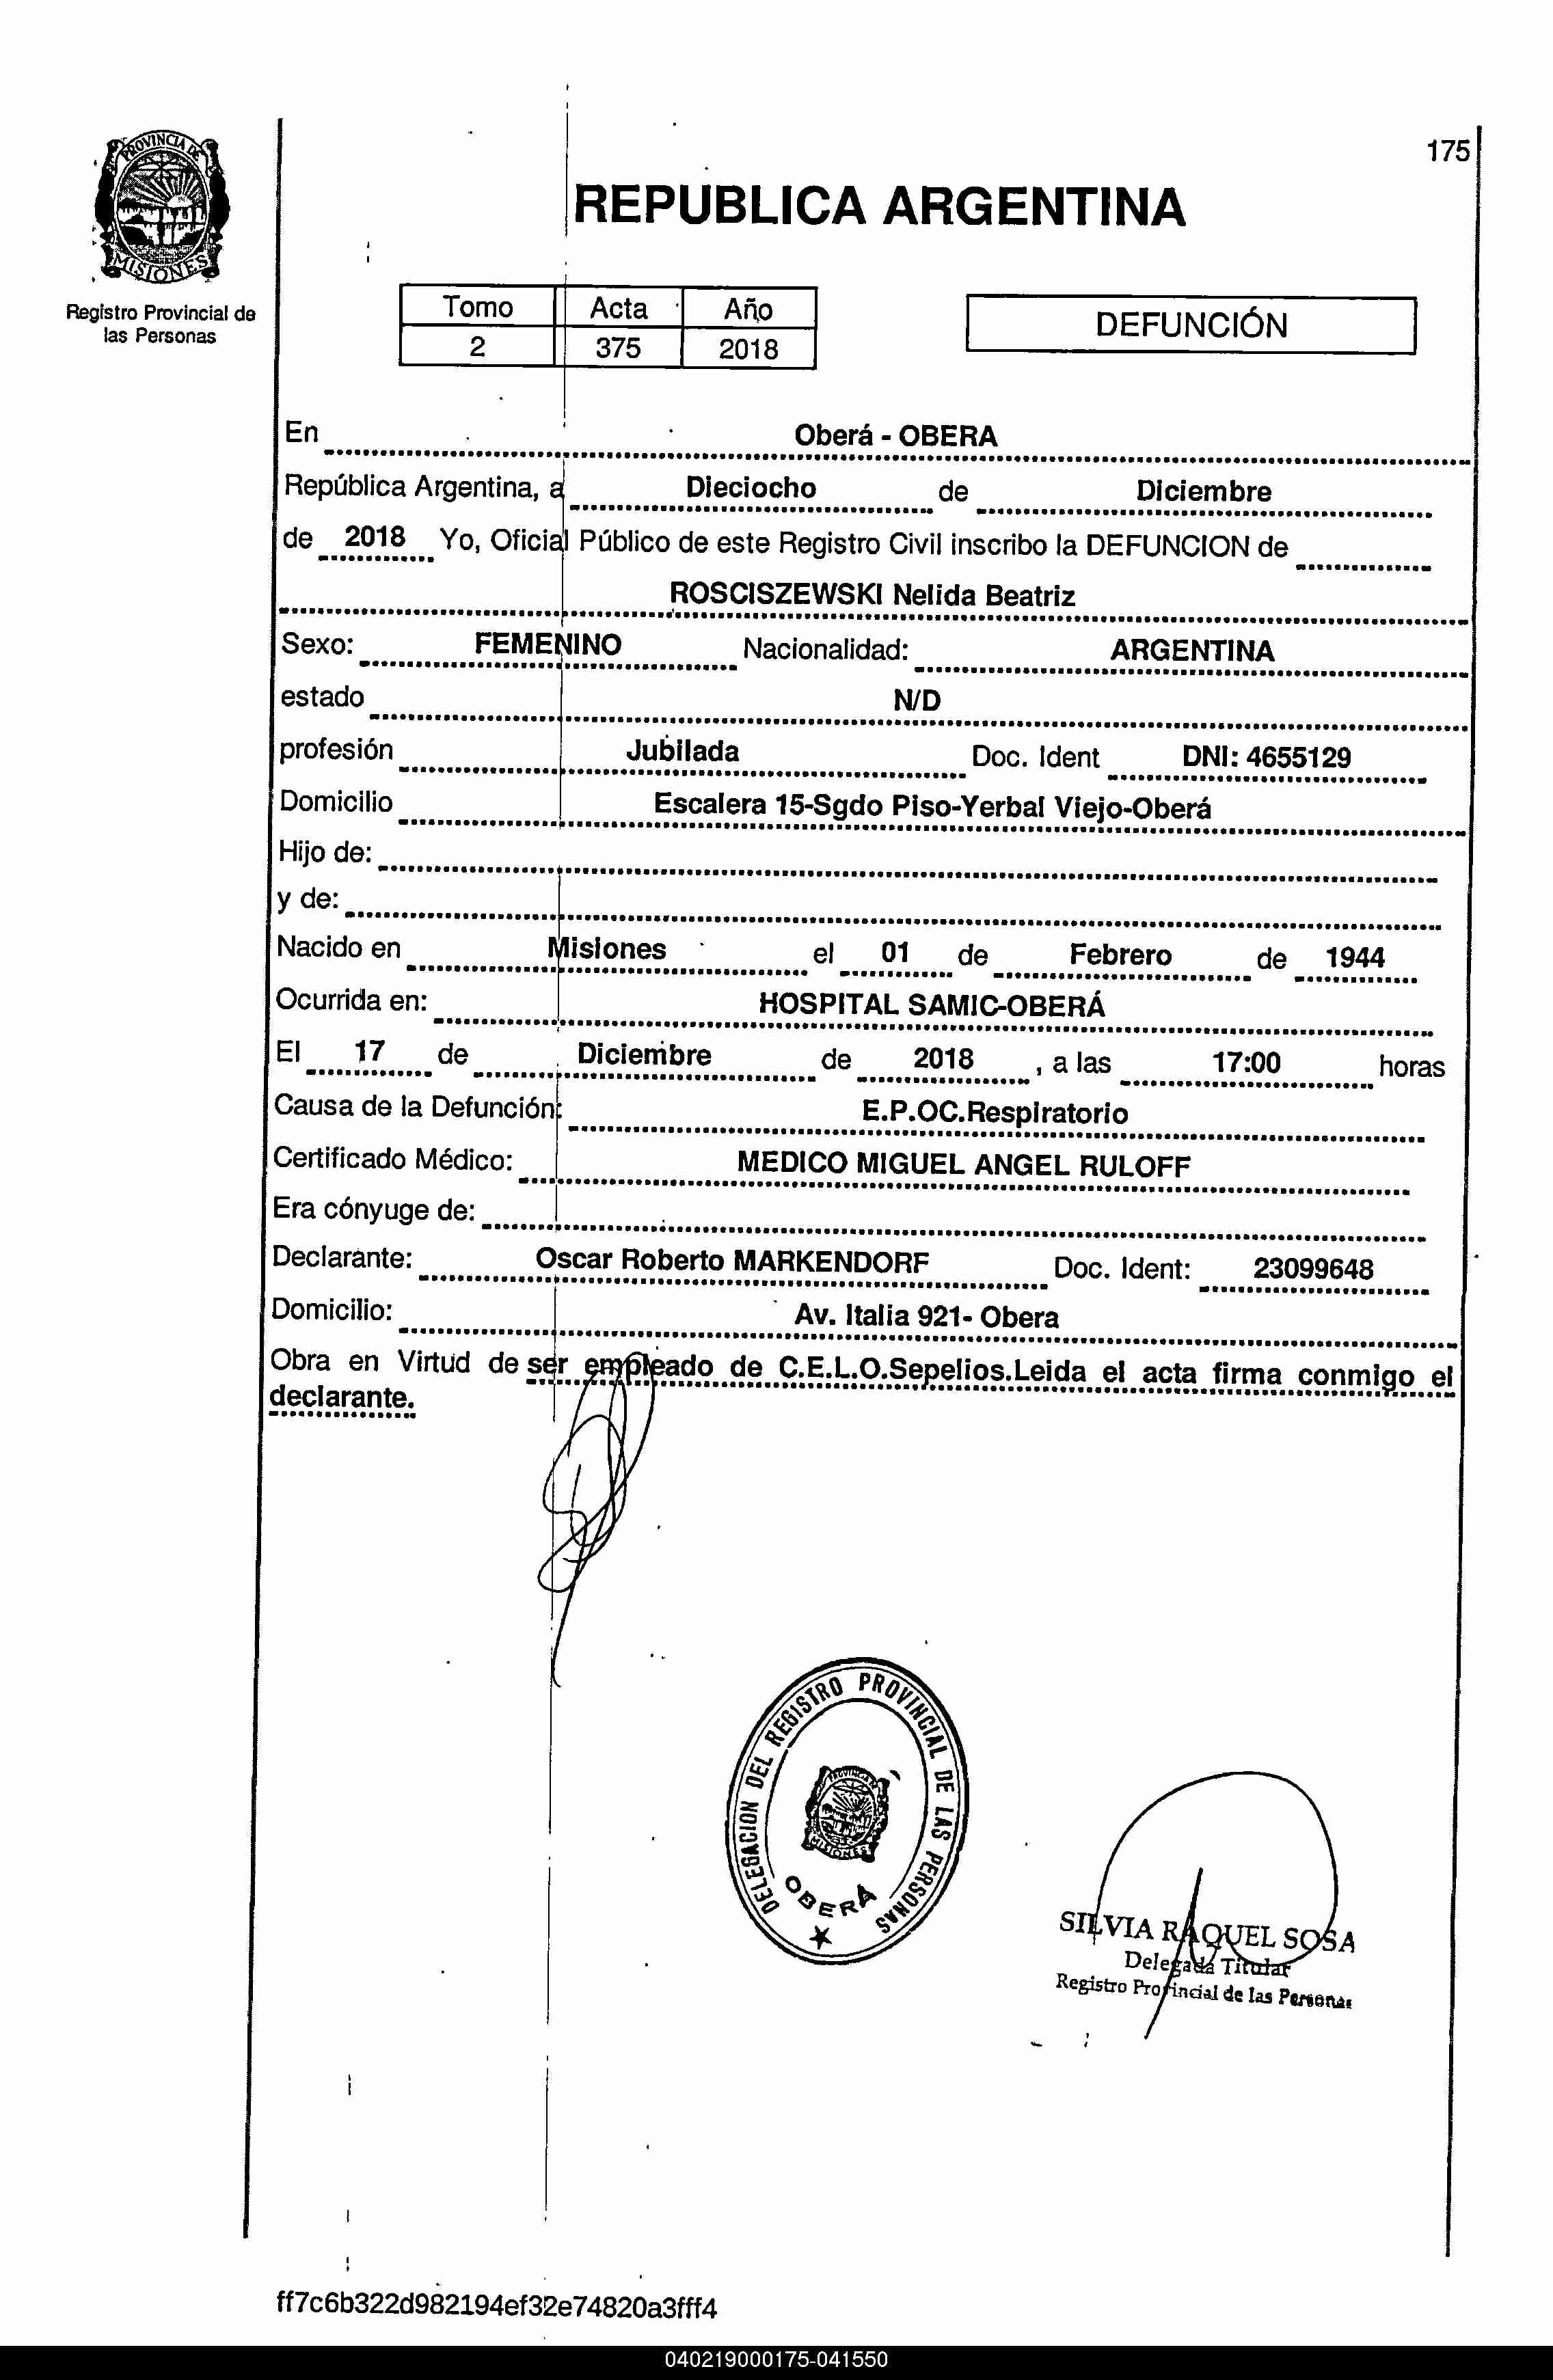 PROVINCIA DE
MISIONES
Registro Provincial de
las Personas
175
REPUBLICA ARGENTINA
Tomo Acta Año
2 375 2018
DEFUNCIÓN
En Oberá - OBERA
República Argentina, a Dieciocho de Diciembre
de 2018 Yo, Oficial Público de este Registro Civil inscribo la DEFUNCION de
ROSCISZEWSKI Nelida Beatriz
Sexo: FEMENINO Nacionalidad: ARGENTINA
estado N/D
profesión Jubilada Doc. Ident DNI: 4655129
Domicilio Escalera 15-Sgdo Piso-Yerbal Viejo-Oberá
Hijo de:
y de:
Nacido en Misiones el 01 de Febrero de 1944
Ocurrida en: HOSPITAL SAMIC-OBERÁ
El 17 de Diciembre de 2018 , a las 17:00 horas
Causa de la Defunción: E.P.OC.Respiratorio
Certificado Médico: MEDICO MIGUEL ANGEL RULOFF
Era cónyuge de:
Declarante: Oscar Roberto MARKENDORF Doc. Ident: 23099648
Domicilio: Av. Italia 921- Obera
Obra en Virtud de ser empleado de C.E.L.O.Sepelios.Leida el acta firma conmigo el
declarante.
DELEGACION DEL REGISTRO PROVINCIAL DE LAS PERSONAS
PROVINCIA DE
MISIONES
OBERÁ
SILVIA RAQUEL SOSA
Delegada Titular
Registro Provincial de las Personas
ff7c6b322d982194ef32e74820a3fff4
040219000175-041550